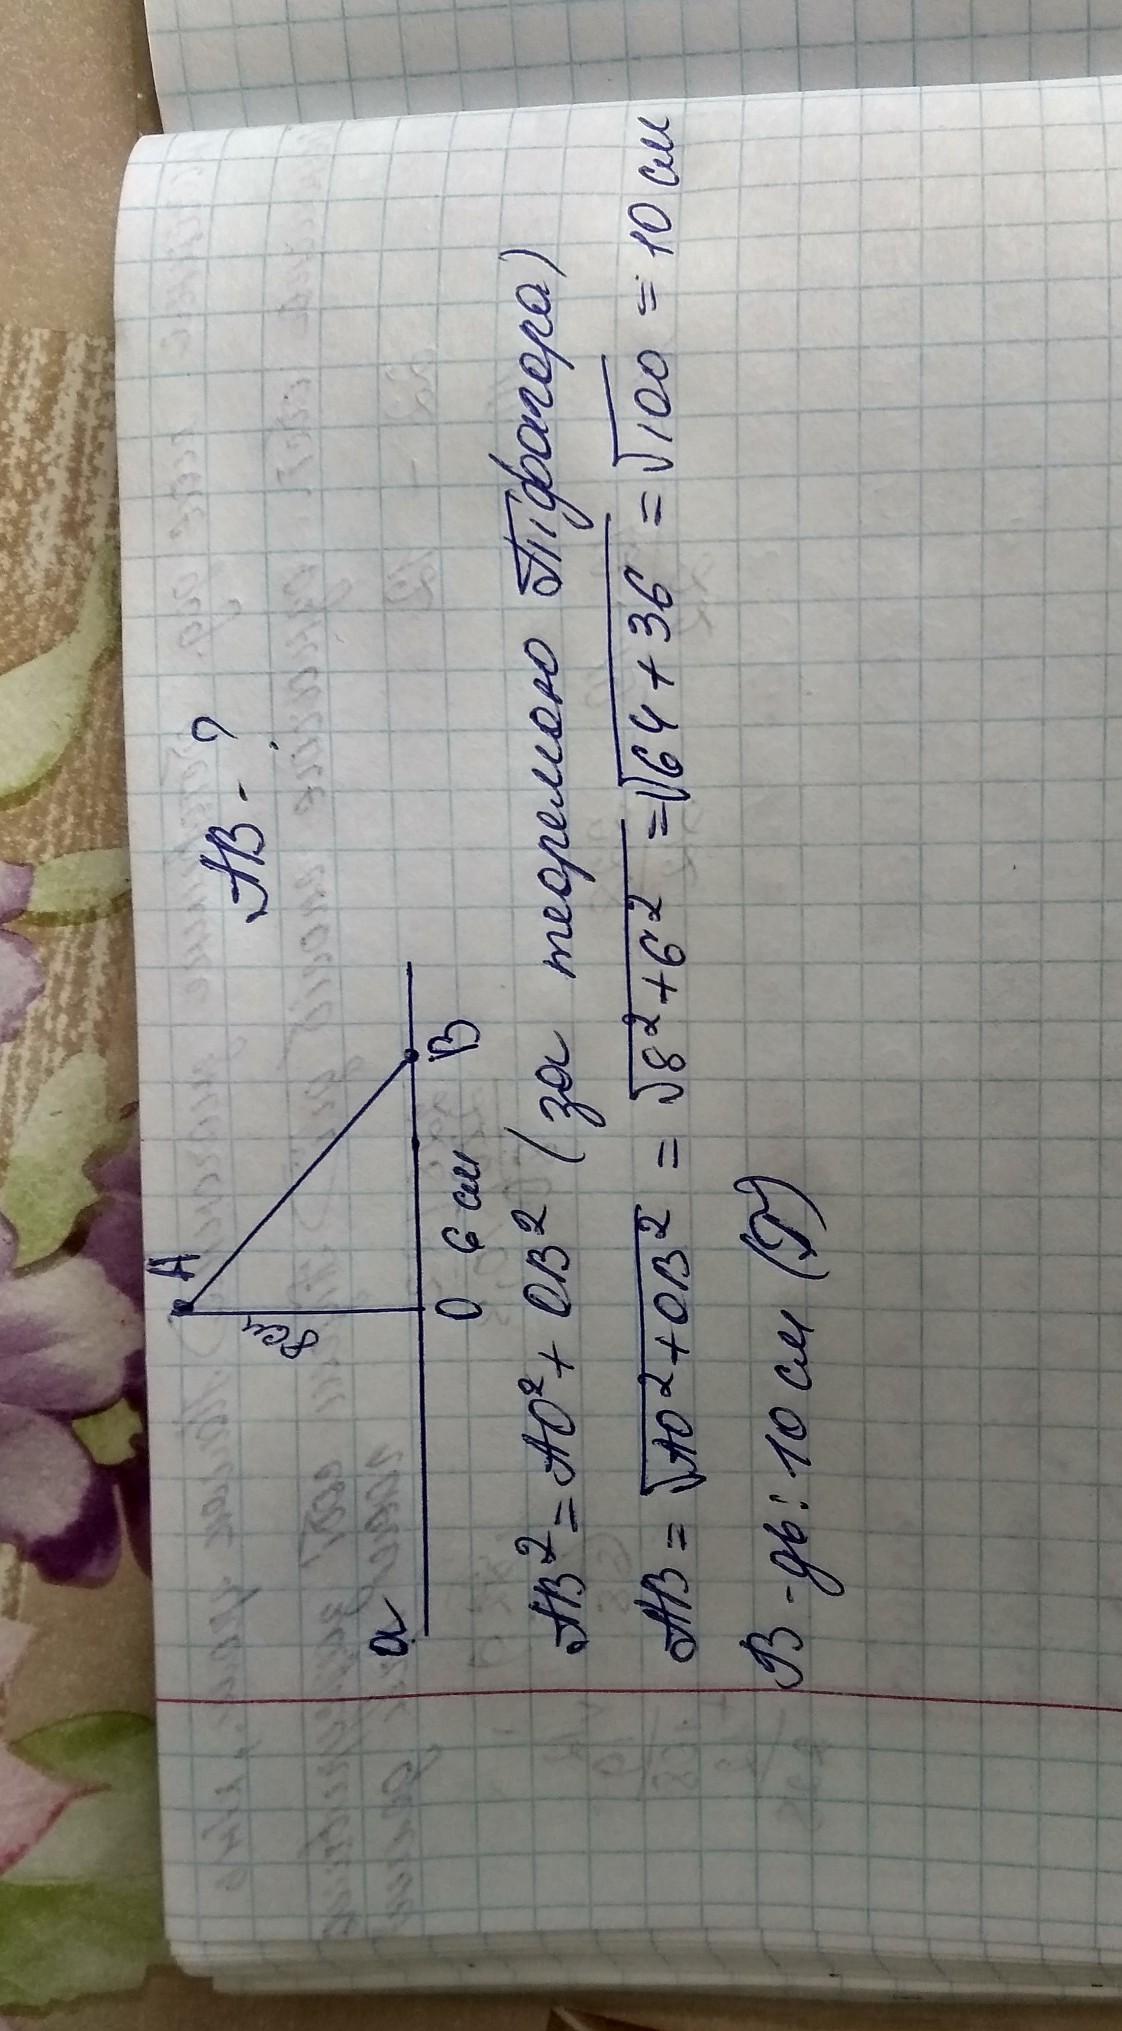 AB - ?
A
8 см
a
O 6 см B
AB² = AO² + OB² (за теоремою Піфагора)
AB = √AO² + OB² = √8² + 6² = √64 + 36 = √100 = 10 см
В-дь: 10 см (Г)